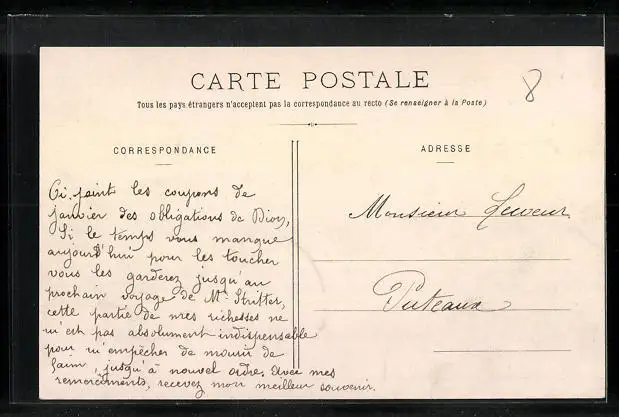 8
CARTE POSTALE
Tous les pays étrangers n'acceptent pas la correspondance au recto (Se renseigner à la Poste)
CORRESPONDANCE
ADRESSE
Ci-joint les coupons de
janvier des obligations de Dion,
Si le temps vous manque
aujourd'hui pour les toucher
vous les garderez jusqu'au
prochain voyage de Mr Stritter,
cette partie de mes richesses ne
m'est pas absolument indispensable
pour m'empêcher de mourir de
faim, jusqu'à nouvel ordre. Avec mes
remerciements, recevez mon meilleur souvenir.
Monsieur
Puteaux